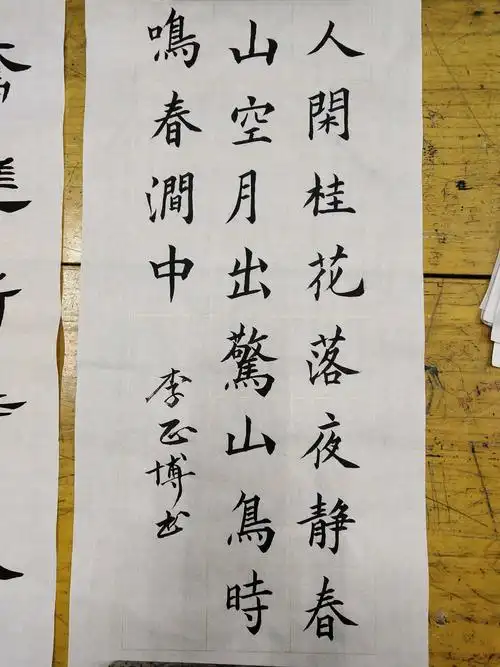 人閑桂花落夜静春
山空月出驚山鳥時
鳴春澗中
李正博书